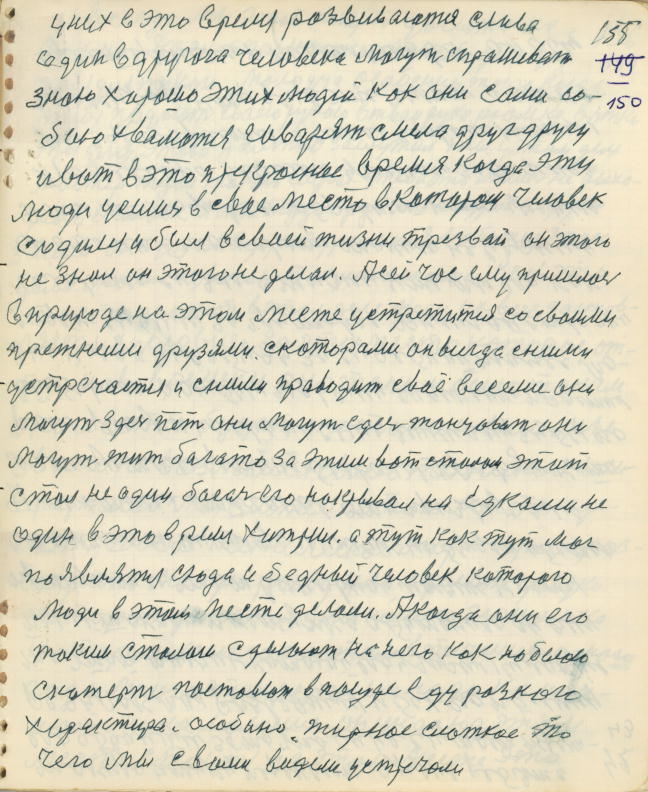 155
149
150
у них в это время развиваются слава
один в другога человека могут спрашиват
знаю хорошо этих людей как они сами со-
баю хвалятся говарят смела друг другу
и вот в это прекрасные время когда эти
люди ушли в свае место в котором человек
сюдим и был в своей жизни трезвай он этого
не знал он этого не делал. А сей час ему пришлос
в природе на этом месте устретится со своими
прежнеми друзями. с которами он всегда сними
устречается и сними праводит сваё веселие они
могут здес пет они могут сдес танцоват они
могут пит багато за этим вот сталом этат
стол не один богач его накрывал на едками не
один в это время хитрил. а тут как тут мог
появлятя сюда и бедный человек которого
люди в этом месте делали. А когда они его
таким сталом сделают на него как набелаю
скатерт поставят в посуде еду разного
характира. особено жирное слаткое это
чего мы с вами видели устречали